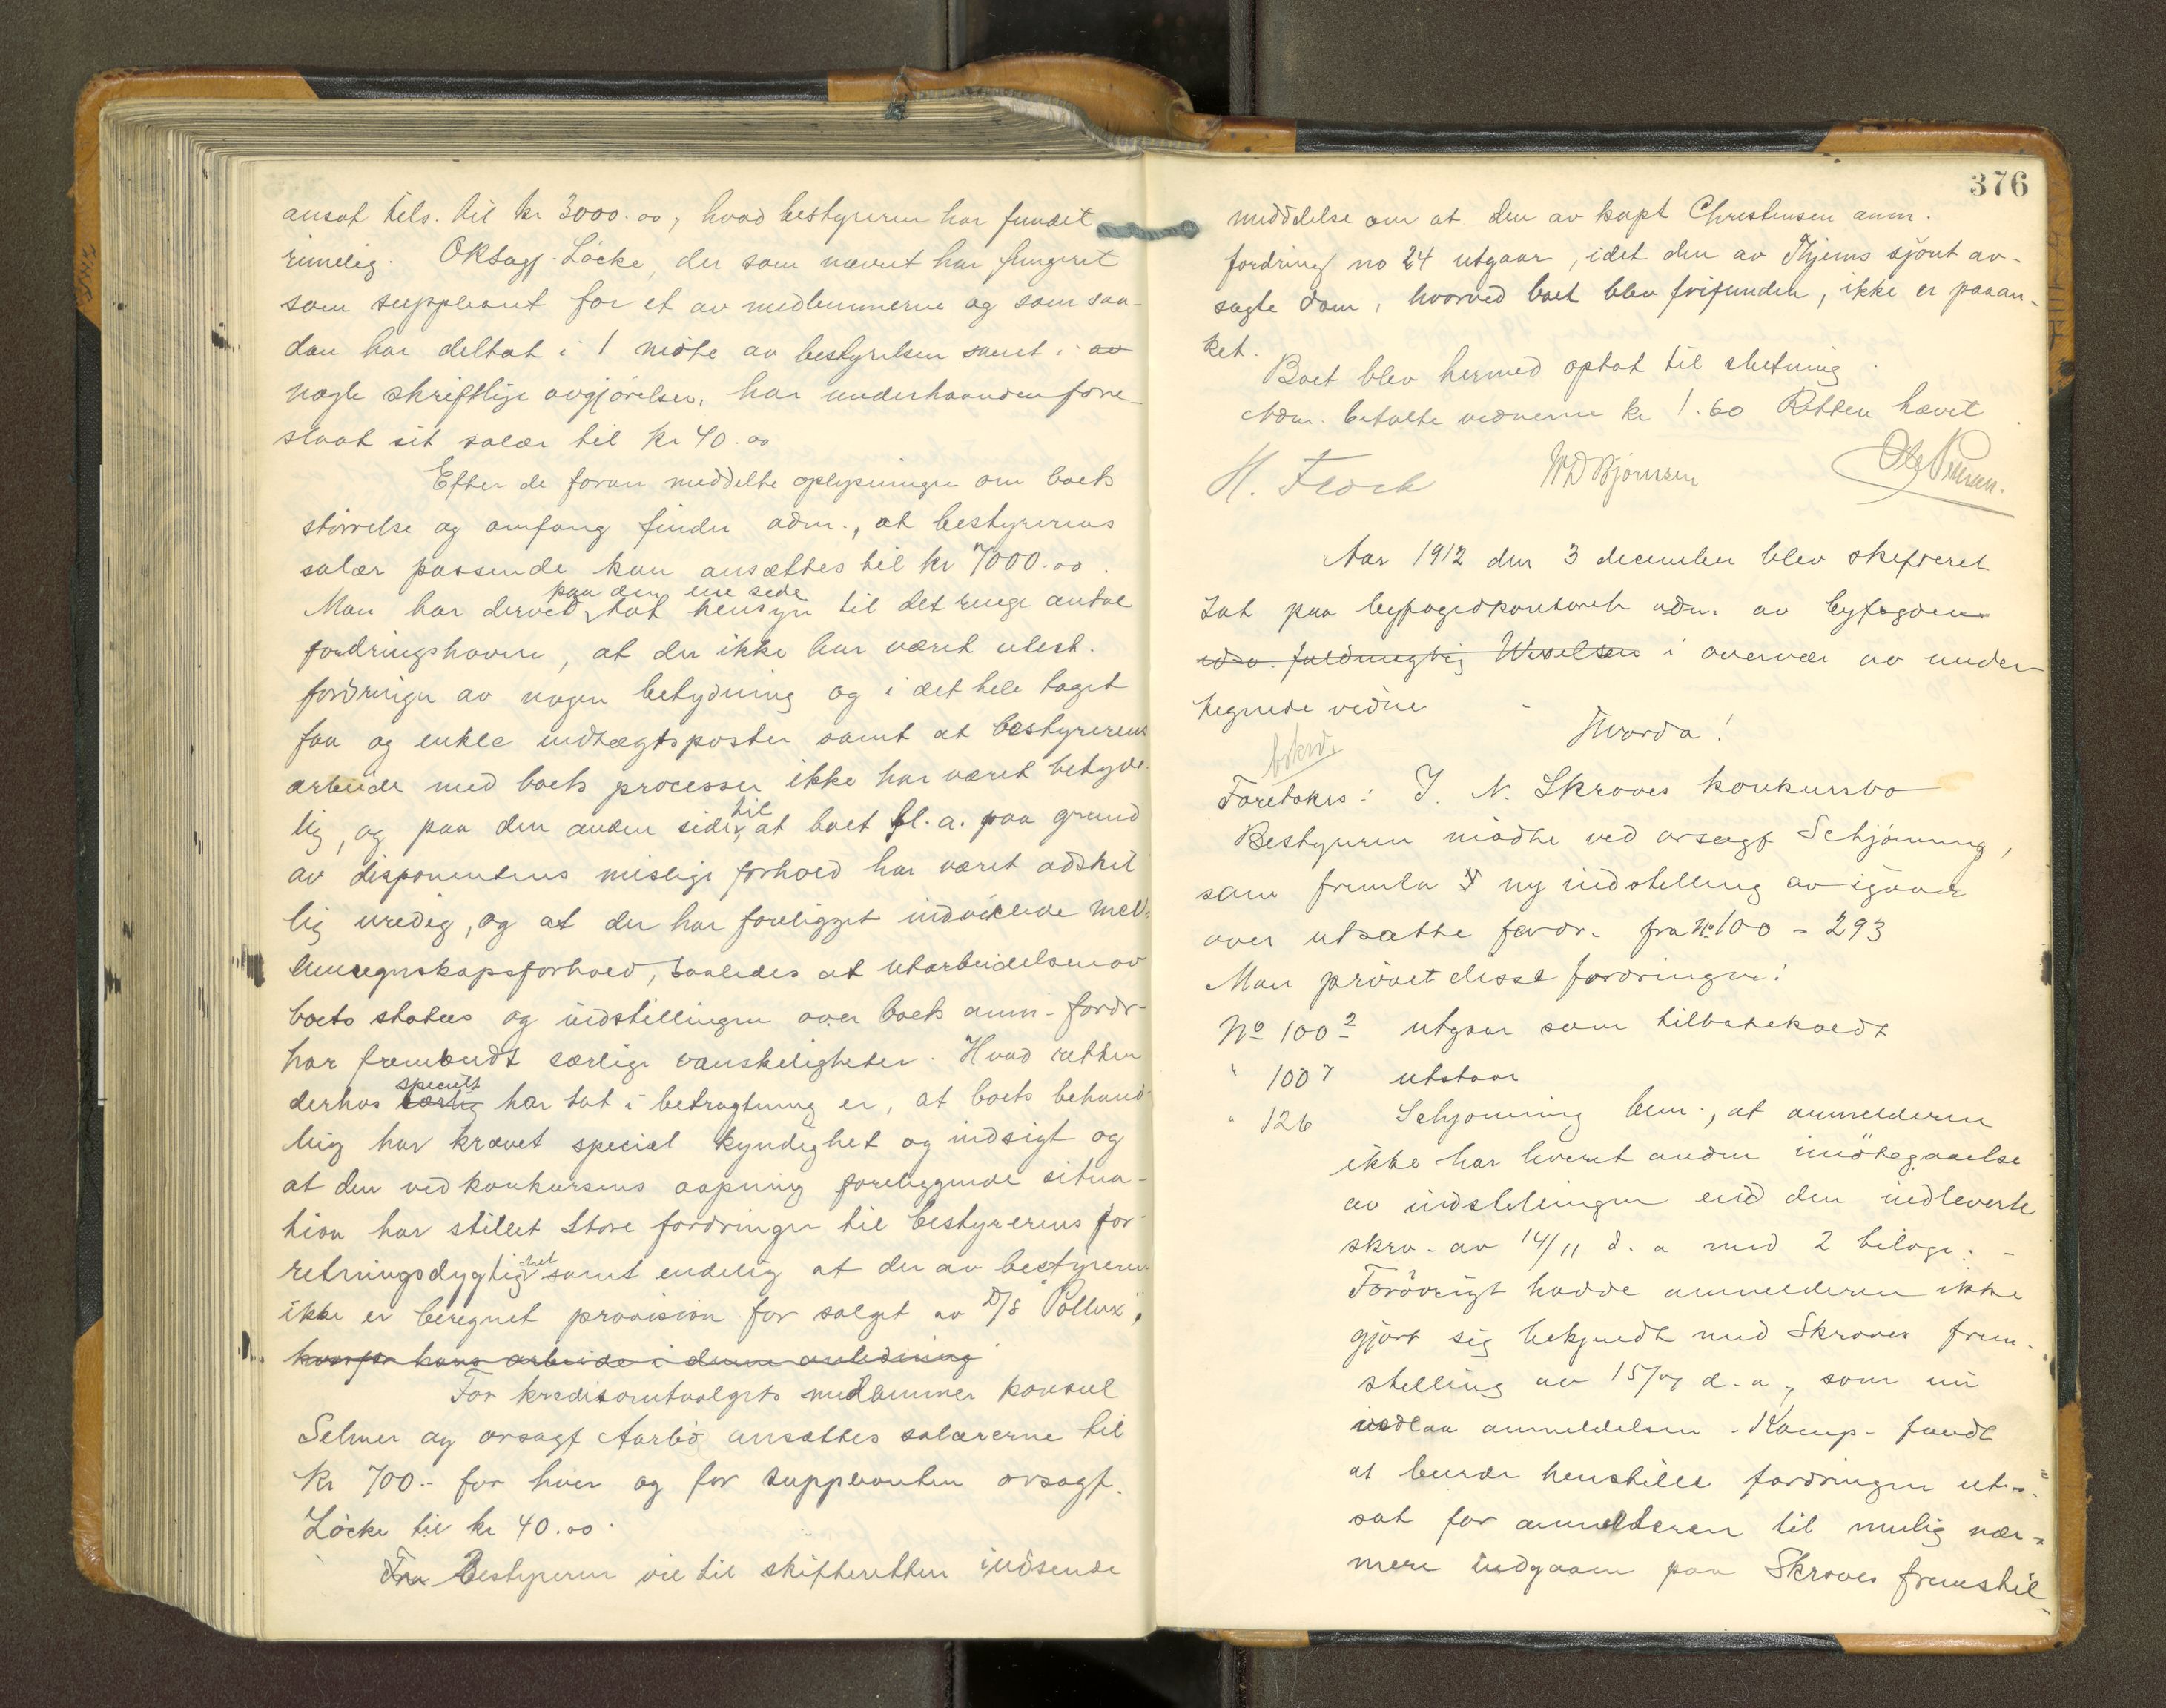 ansat tils. til kr 3000.00, hvad bestyreren har fundet
rimelig. ORSagf. Löcke, der som nævnt har fungeret
som suppleant for et av medlemmerne og som saa-
dan har deltat i 1 möte av bestyrelsen samt i av
nogle skriftlige avgjörelser, har underhaanden fore-
slaat sit salær til kr 40.00
Efter de foran meddelte oplysninger om boets
störrelse og omfang finder adm., at bestyrerens
salær passende kan ansættes til kr 7000.00.
paa den ene side
Man har derved tat hensyn til det ringe antal
fordringshavere, at der ikke har været utest.
fordringer av nogen betydning og i det hele taget
faa og enkle indtægtsposter samt at bestyrerens
arbeide med boets processer ikke har været betyde-
til
lig, og paa den anden side, at boet bl.a. paa grund
av disponentens mislige forhold har været adskil
lig uredig, og at der har foreligget indviklede mel-
lemregnskapsforhold, saaledes at utarbeidelsen av
boets status og indstillingen over boets anm. fordr.
har frembudt særlige vanskeligheter. Hvad retten
specielt
derhos særlig har tat i betragtning er, at boets behand-
ling har krævet speciel kyndighet og indsigt og
at den ved konkursens aapning foreliggende situa-
tion har stillet store fordringer til bestyrerens for-
het
retningsdygtig samt endelig at der av bestyreren
ikke er beregnet provision for salget av D/S "Pollux",
hvorfor hans arbeide i denne anledning
For kreditorutvalgets medlemmer konsul
Selmer og orsagf Aarbö ansættes salærerne til
kr 700.- for hver og for suppleanten orsagf.
Löcke til kr 40.00.
Fra Bestyreren vil til skifteretten indsende
376
meddelelse om at den av kapt Christensen anm.
fordring no 24 utgaar, idet den av Thjems sjöret av-
sagte dom, hvorved boet blev frifunden, ikke er paaan-
ket.
Boet blev hermed optat til slutning.
Adm. betalte vidnerne kr 1.60 Retten hævet
H. Flock
Björnssen
Aar 1912 den 3 december blev skifteret
sat paa byfogedkontoret adm. av byfogden
ved fuldmægtig Weselsen i overvær av under
tegnede vidner
Hvorda!
Foretokes: J. N. Skroves konkursbo
Bestyreren mödte ved orsagf Schjönning,
som fremla ny indstilling av igaar
over utsatte fordr. fra No 100 - 293
Man prövet disse fordringer:
No 100 2 utgaar som tilbakekaldt
" 100 7 utstaar
" 126 Schjönning bem., at anmelderen
ikke har leveret anden imötegaaelse
av indstillingen end den indleverte
skrv. av 14/11 d. a med 2 bilage. -
Forövrigt hadde anmelderen ikke
gjort sig bekjendt med Skroves frem-
stilling av 15/7 d. a., som nu
vedlaa anmeldelsen. Komp. fandt
at burde henstille fordringen ut-
sat for anmelderen til mulig nær-
mere indgaaen paa Skroves fremstil-